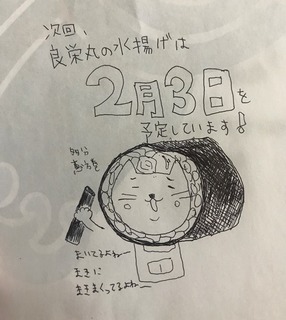 次回、
良栄丸の水揚げは
2月3日を
予定しています!
多分
恵方を
むいてるよねー
まさに
まきまくってるよねー